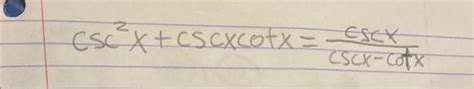 csc²x + cscxcotx = cscx / cscx - cotx